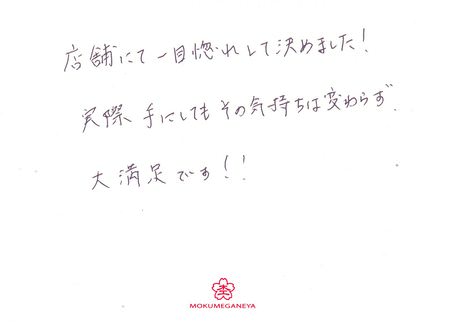 店舗にて一目惚れして決めました!
実際手にしてもその気持ちは変わらず
大満足です!!
MOKUMEGANEYA